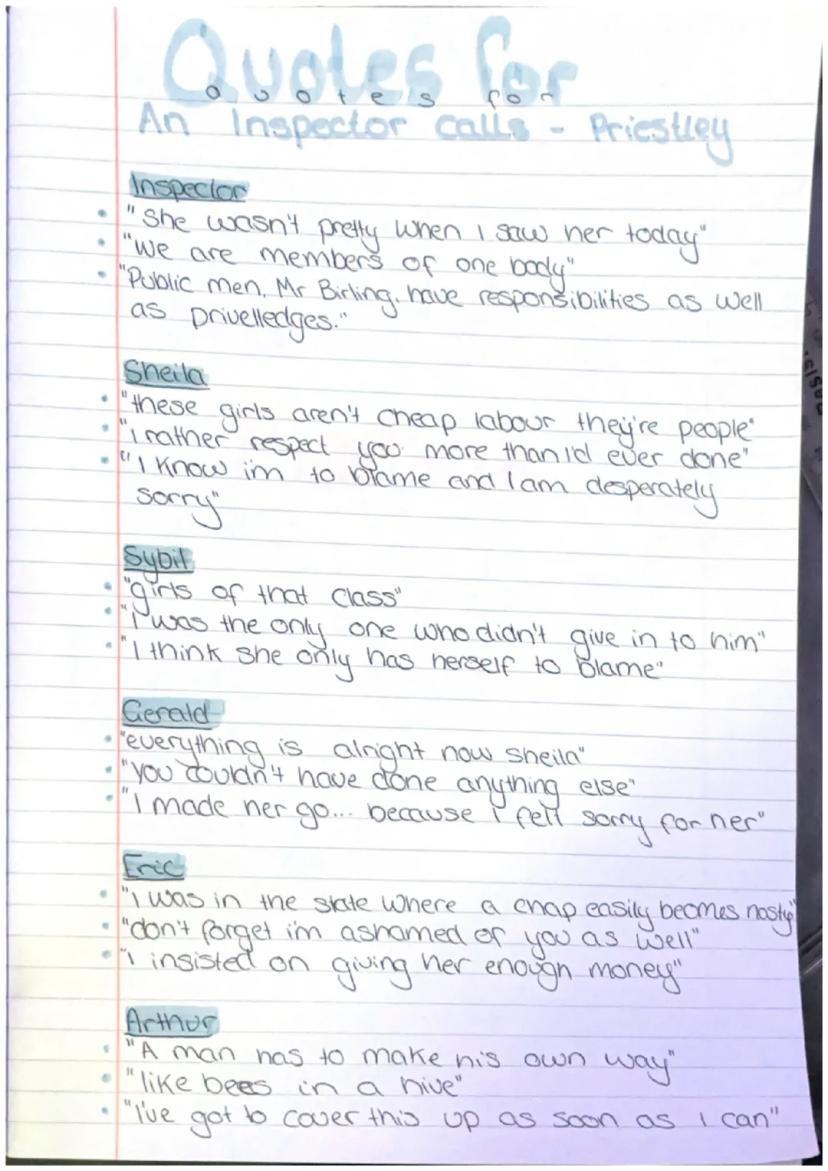 Quotes for
Quotes for
An Inspector calls - Priestley
Inspector
"She wasn't pretty when I saw her today"
"We are members of one body"
"Public men, Mr Birling, have responsibilities as well
as privelledges."
Sheila
"these girls aren't cheap labour they're people"
"i rather respect you more than i'd ever done"
"I know i'm to blame and I am desperately
sorry"
Sybil
"girls of that class"
"I was the only one who didn't give in to him"
"I think she only has herself to blame"
Gerald
"everything is alright now sheila"
"you couldn't have done anything else"
"I made her go... because i felt sorry for her"
Eric
"i was in the state where a chap easily becomes nasty"
"don't forget i'm ashamed of you as well"
"i insisted on giving her enough money"
Arthur
"A man has to make his own way"
"like bees in a hive"
"I've got to cover this up as soon as i can"